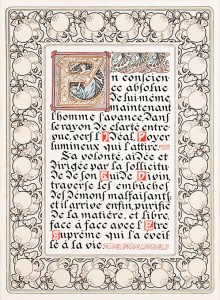 En conscien
ce absolue
de lui-même
maintenant
l'homme s'avance, Dans
le rayon de clarté entre
vue, vers l'Idéal, Foyer
lumineux qui l'attire.
Sa volonté, aidée et
dirigée par la sollicitu
de de son Guide Divin
traverse les embûches
des Démons malfaisants
et il arrive enfin, purifié
de la matière, et libre,
face à face avec l'Etre
Suprême qui l'a éveil
lé à la vie.